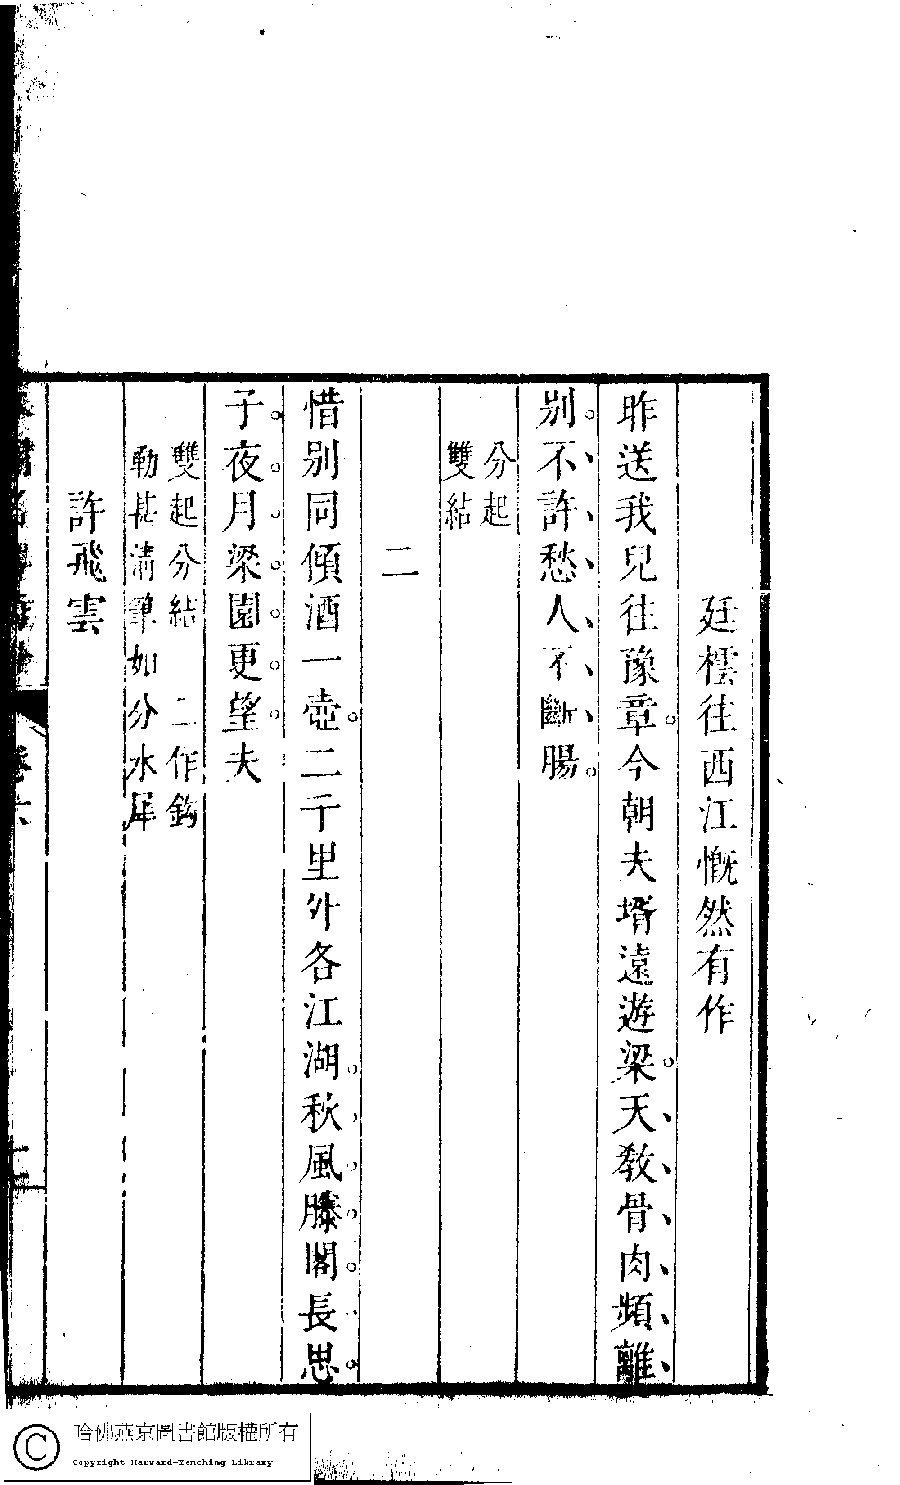 廷橒往西江慨然有作
昨送我兒往豫章。今朝夫壻遠遊梁。天、教、骨、肉、頻、離、
别。不、許、愁、人、不、斷、腸。
分起
雙結
二
惜别同傾酒一壺。二千里外各江湖。秋風滕閣長思
子夜月梁園更望夫
雙起分結 二作鈎
勒甚清筆如分水犀
許飛雲
卷六
哈佛燕京圖書館版權所有
Copyright Harvard-Yenching Library